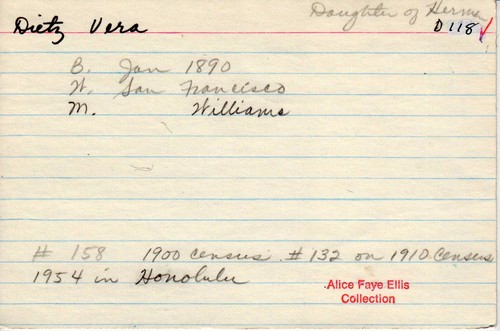 Daughter of Herman
Dietz Vera D118
B. Jan 1890
W. San Francisco
M. Williams
# 158 1900 census. # 132 on 1910 Census
1954 in Honolulu
Alice Faye Ellis
Collection